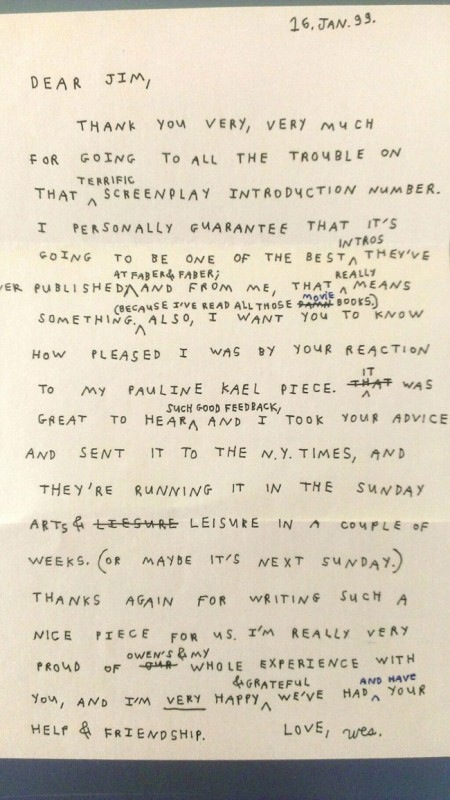 16, JAN. 99.
DEAR JIM,
THANK YOU VERY, VERY MUCH
FOR GOING TO ALL THE TROUBLE ON
TERRIFIC
THAT ^ SCREENPLAY INTRODUCTION NUMBER.
I PERSONALLY GUARANTEE THAT IT'S
INTROS
GOING TO BE ONE OF THE BEST ^ THEY'VE
AT FABER & FABER; REALLY
VER PUBLISHED ^ AND FROM ME, THAT ^ MEANS
(BECAUSE I'VE READ ALL THOSE DAMN MOVIE BOOKS.)
SOMETHING. ^ ALSO, I WANT YOU TO KNOW
HOW PLEASED I WAS BY YOUR REACTION
IT
TO MY PAULINE KAEL PIECE. THAT ^ WAS
SUCH GOOD FEEDBACK,
GREAT TO HEAR ^ AND I TOOK YOUR ADVICE
AND SENT IT TO THE N.Y. TIMES, AND
THEY'RE RUNNING IT IN THE SUNDAY
ARTS & LIESURE LEISURE IN A COUPLE OF
WEEKS. (OR MAYBE IT'S NEXT SUNDAY.)
THANKS AGAIN FOR WRITING SUCH A
NICE PIECE FOR US. I'M REALLY VERY
OWEN'S & MY
PROUD OF OUR WHOLE EXPERIENCE WITH
& GRATEFUL AND HAVE
YOU, AND I'M VERY HAPPY ^ WE'VE HAD ^ YOUR
HELP & FRIENDSHIP. LOVE, Wes.